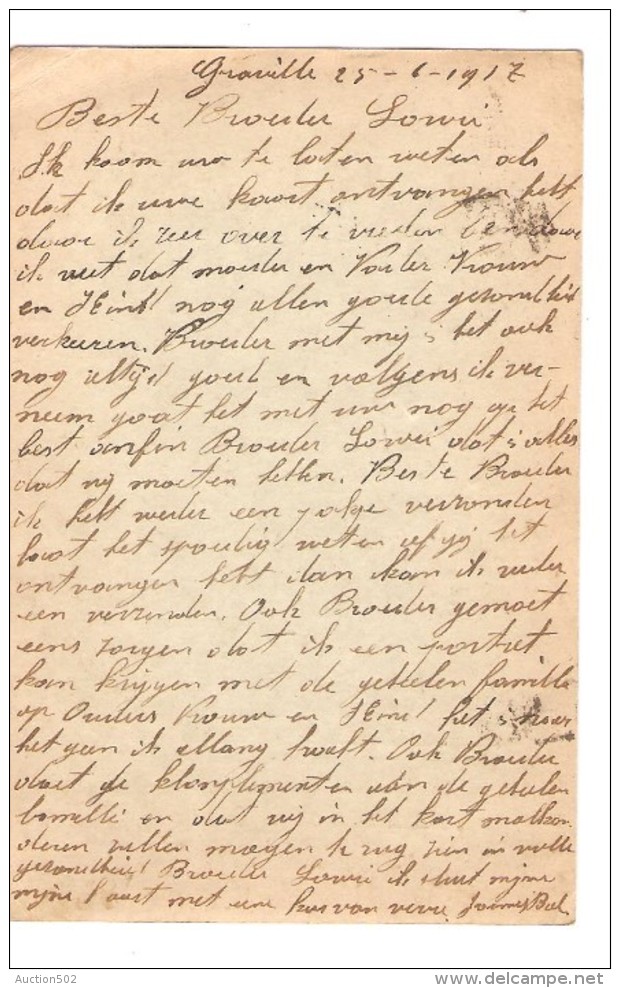 Graville 25-6-1917
Beste Broeder Lowie
Ik koom uw te laten weten als
dat ik uwe kaart ontvangen hebt
daar ik zeer over te vreden ben daar
ik weet dat moeder en Vader Vrouw
en Kind nog allen goede gezondheid
verkeeren. Broeder met mij is het ook
nog altijd goed en volgens ik ver-
neem gaat het met uw nog op het
best anfin Broeder Lowie dat is alles
dat wij moeten hebben. Beste Broeder
ik hebt weder een pakje verzonden
laat het spoedig weten of gij het
ontvangen hebt dan kan ik weder
een verzenden. Ook Broeder gemoet
eens zorgen dat ik een portret
kan krijgen met de geheelen famille
op Ouders Vrouw en Kind het is
hetgeen ik allang hoopt. Ook Broeder
doet de klomplementen aan de geheelen
familli en dat wij in het kort malkan
deren zullen mogen te rug zien in volle
gezondheid Broeder Lowie ik sluit mijne
mijne kaart met eene kus van verre
Auction502